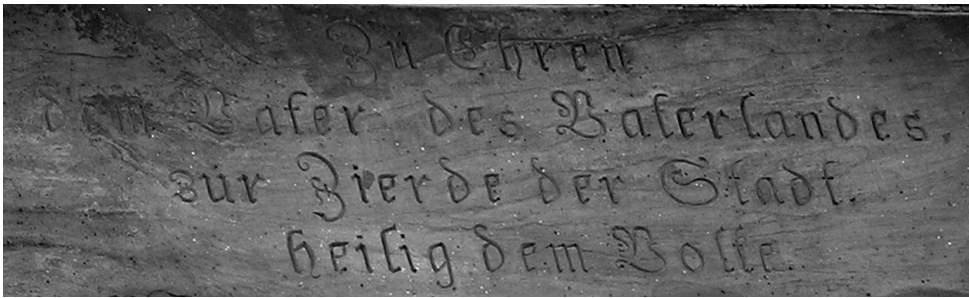 Zu Ehren
dem Vater des Vaterlandes,
zur Zierde der Stadt.
heilig dem Volke.